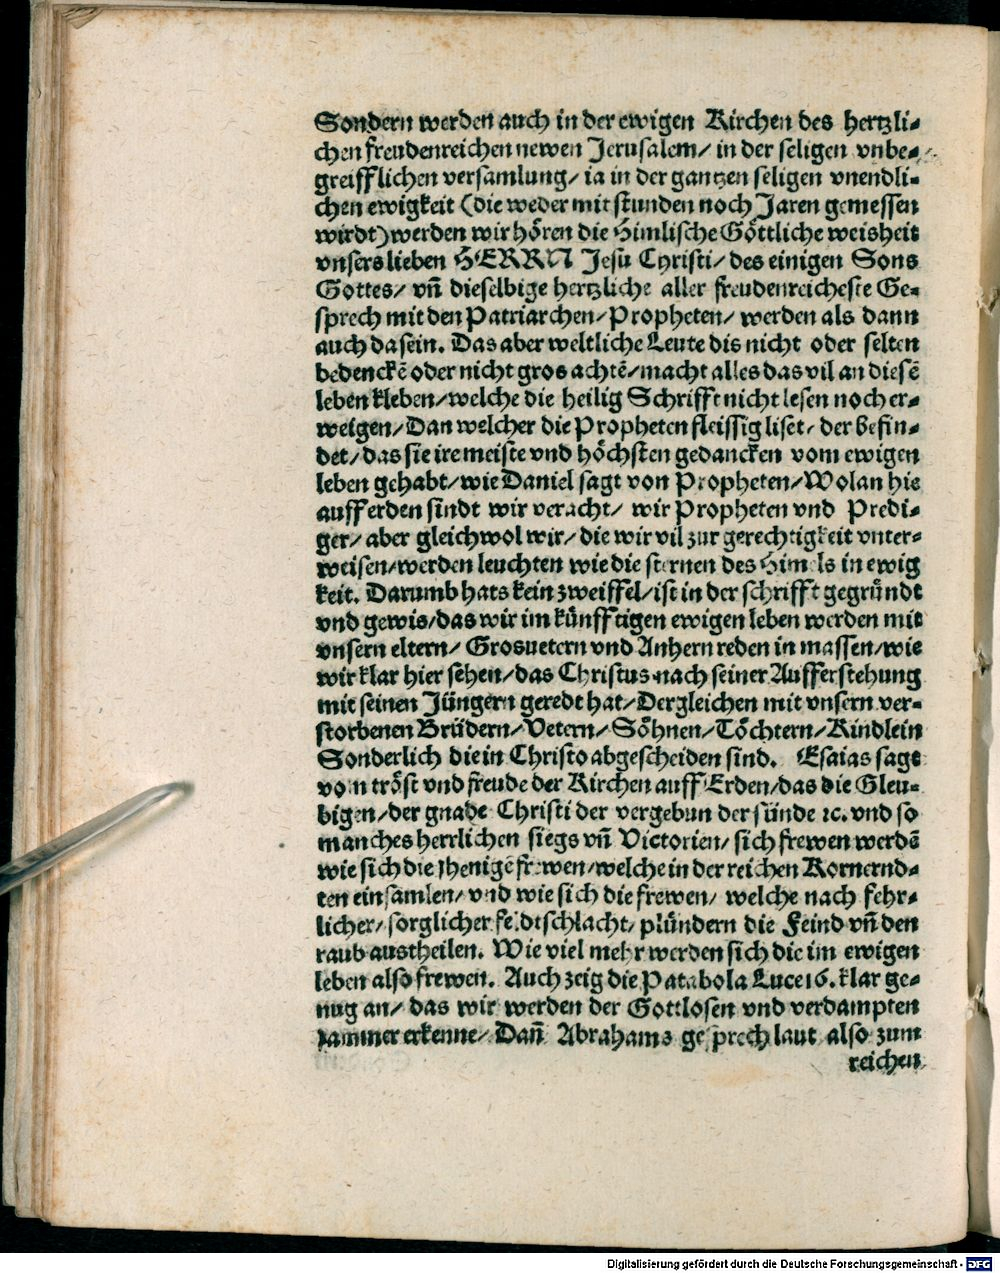 Sondern werden auch in der ewigen Kirchen des hertzli⸗
chen freudenreichen newen Jerusalem/ in der seligen vnbe⸗
greifflichen versamlung/ ia in der gantzen seligen vnendli⸗
chen ewigkeit (die weder mit stunden noch Jaren gemessen
wirdt) werden wir hören die Himlische Göttliche weisheit
vnsers lieben HERRN Jesu Christi/ des einigen Sons
Gottes/ vn̄ dieselbige hertzliche aller freudenreicheste Ge⸗
sprech mit den Patriarchen/ Propheten/ werden als dann
auch da sein. Das aber weltliche Leute dis nicht oder selten
bedenckē oder nicht gros achtē/ macht alles das vil an diesē
leben kleben/ welche die heilig Schrifft nicht lesen noch er⸗
wegen/ Dan welcher die Propheten fleissig liset/ der befin⸗
det/ das sie ire meiste vnd höchsten gedancken vom ewigen
leben gehabt/ wie Daniel sagt von Propheten/ Wolan hie
auff erden sindt wir veracht/ wir Propheten vnd Predi⸗
ger/ aber gleichwol wir/ die wir vil zur gerechtigkeit vnter⸗
weisen/ werden leuchten wie die sternen des Himels in ewig
keit. Darumb hats kein zweiffel/ ist in der schrifft gegründt
vnd gewis/ das wir im künfftigen ewigen leben werden mit
vnsern eltern/ Grosuetern vnd Anhern reden in massen/ wie
wir klar hier sehen/ das Christus nach seiner Aufferstehung
mit seinen Jüngern geredt hat/ Dergleichen mit vnsern ver⸗
storbenen Brüdern/ Vetern/ Söhnen/ Töchtern/ Kindlein
Sonderlich die in Christo abgescheiden sind. Esaias sagt
vom tröst vnd freude der Kirchen auff Erden/ das die Gleu⸗
bigen/ der gnade Christi der vergebun der sünde ꝛc. vnd so
manches herrlichen siegs vn̄ Victorien/ sich frewen werdē
wie sich die jhenigē frewen/ welche in der reichen Kornernd⸗
ten einsamlen/ vnd wie sich die frewen/ welche nach fehr⸗
licher/ sorglicher feldtschlacht/ plündern die Feind vn̄ den
raub austheilen. Wie viel mehr werden sich die im ewigen
leben also frewen. Auch zeig die Patabola Luce 16. klar ge⸗
nug an/ das wir werden der Gottlosen vnd verdampten
jammer erkenne/ Dan̄ Abrahams gesprech laut also zum
reichen
Digitalisierung gefördert durch die Deutsche Forschungsgemeinschaft - DFG